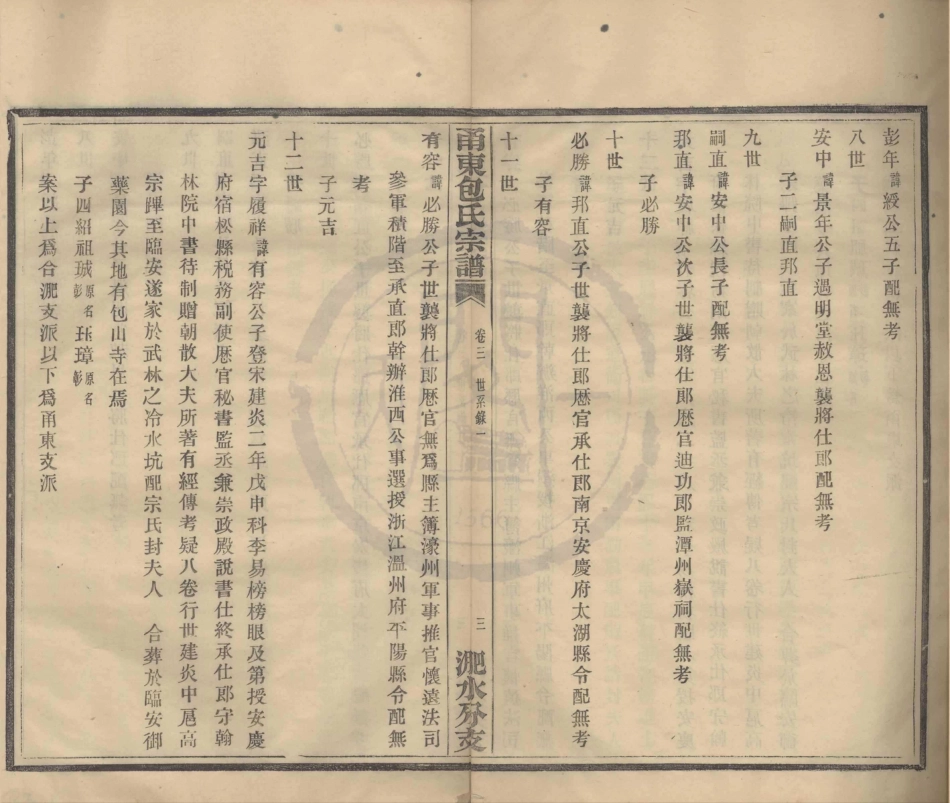 彭年諱綬公五子配無考
八世
安中諱景年公子遇明堂赦恩襲將仕郎配無考
子二嗣直邦直
九世
嗣直諱安中公長子配無考
邦直諱安中公次子世襲將仕郎歷官迪功郎監潭州嶽祠配無考
子必勝
十世
必勝諱邦直公子世襲將仕郎歷官承仕郎南京安慶府太湖縣令配無考
子有容
十一世
甬東包氏宗譜 卷三 世系錄一 三 淝水外支
有容諱必勝公子世襲將仕郎歷官無爲縣主簿濠州軍事推官懷遠法司
參軍積階至承直郎幹辦淮西公事選授浙江溫州府平陽縣令配無
考
子元吉
十二世
元吉字履祥諱有容公子登宋建炎二年戊申科李易榜榜眼及第授安慶
府宿松縣税務副使歷官秘書監丞兼崇政殿說書仕終承仕郎守翰
林院中書待制贈朝散大夫所著有經傳考疑八卷行世建炎中扈高
宗蹕至臨安遂家於武林之冷水坑配宗氏封夫人 合葬於臨安御
藥園今其地有包山寺在焉
子四紹祖珹原名彭珏璋原名彰
案以上爲合淝支派以下爲甬東支派